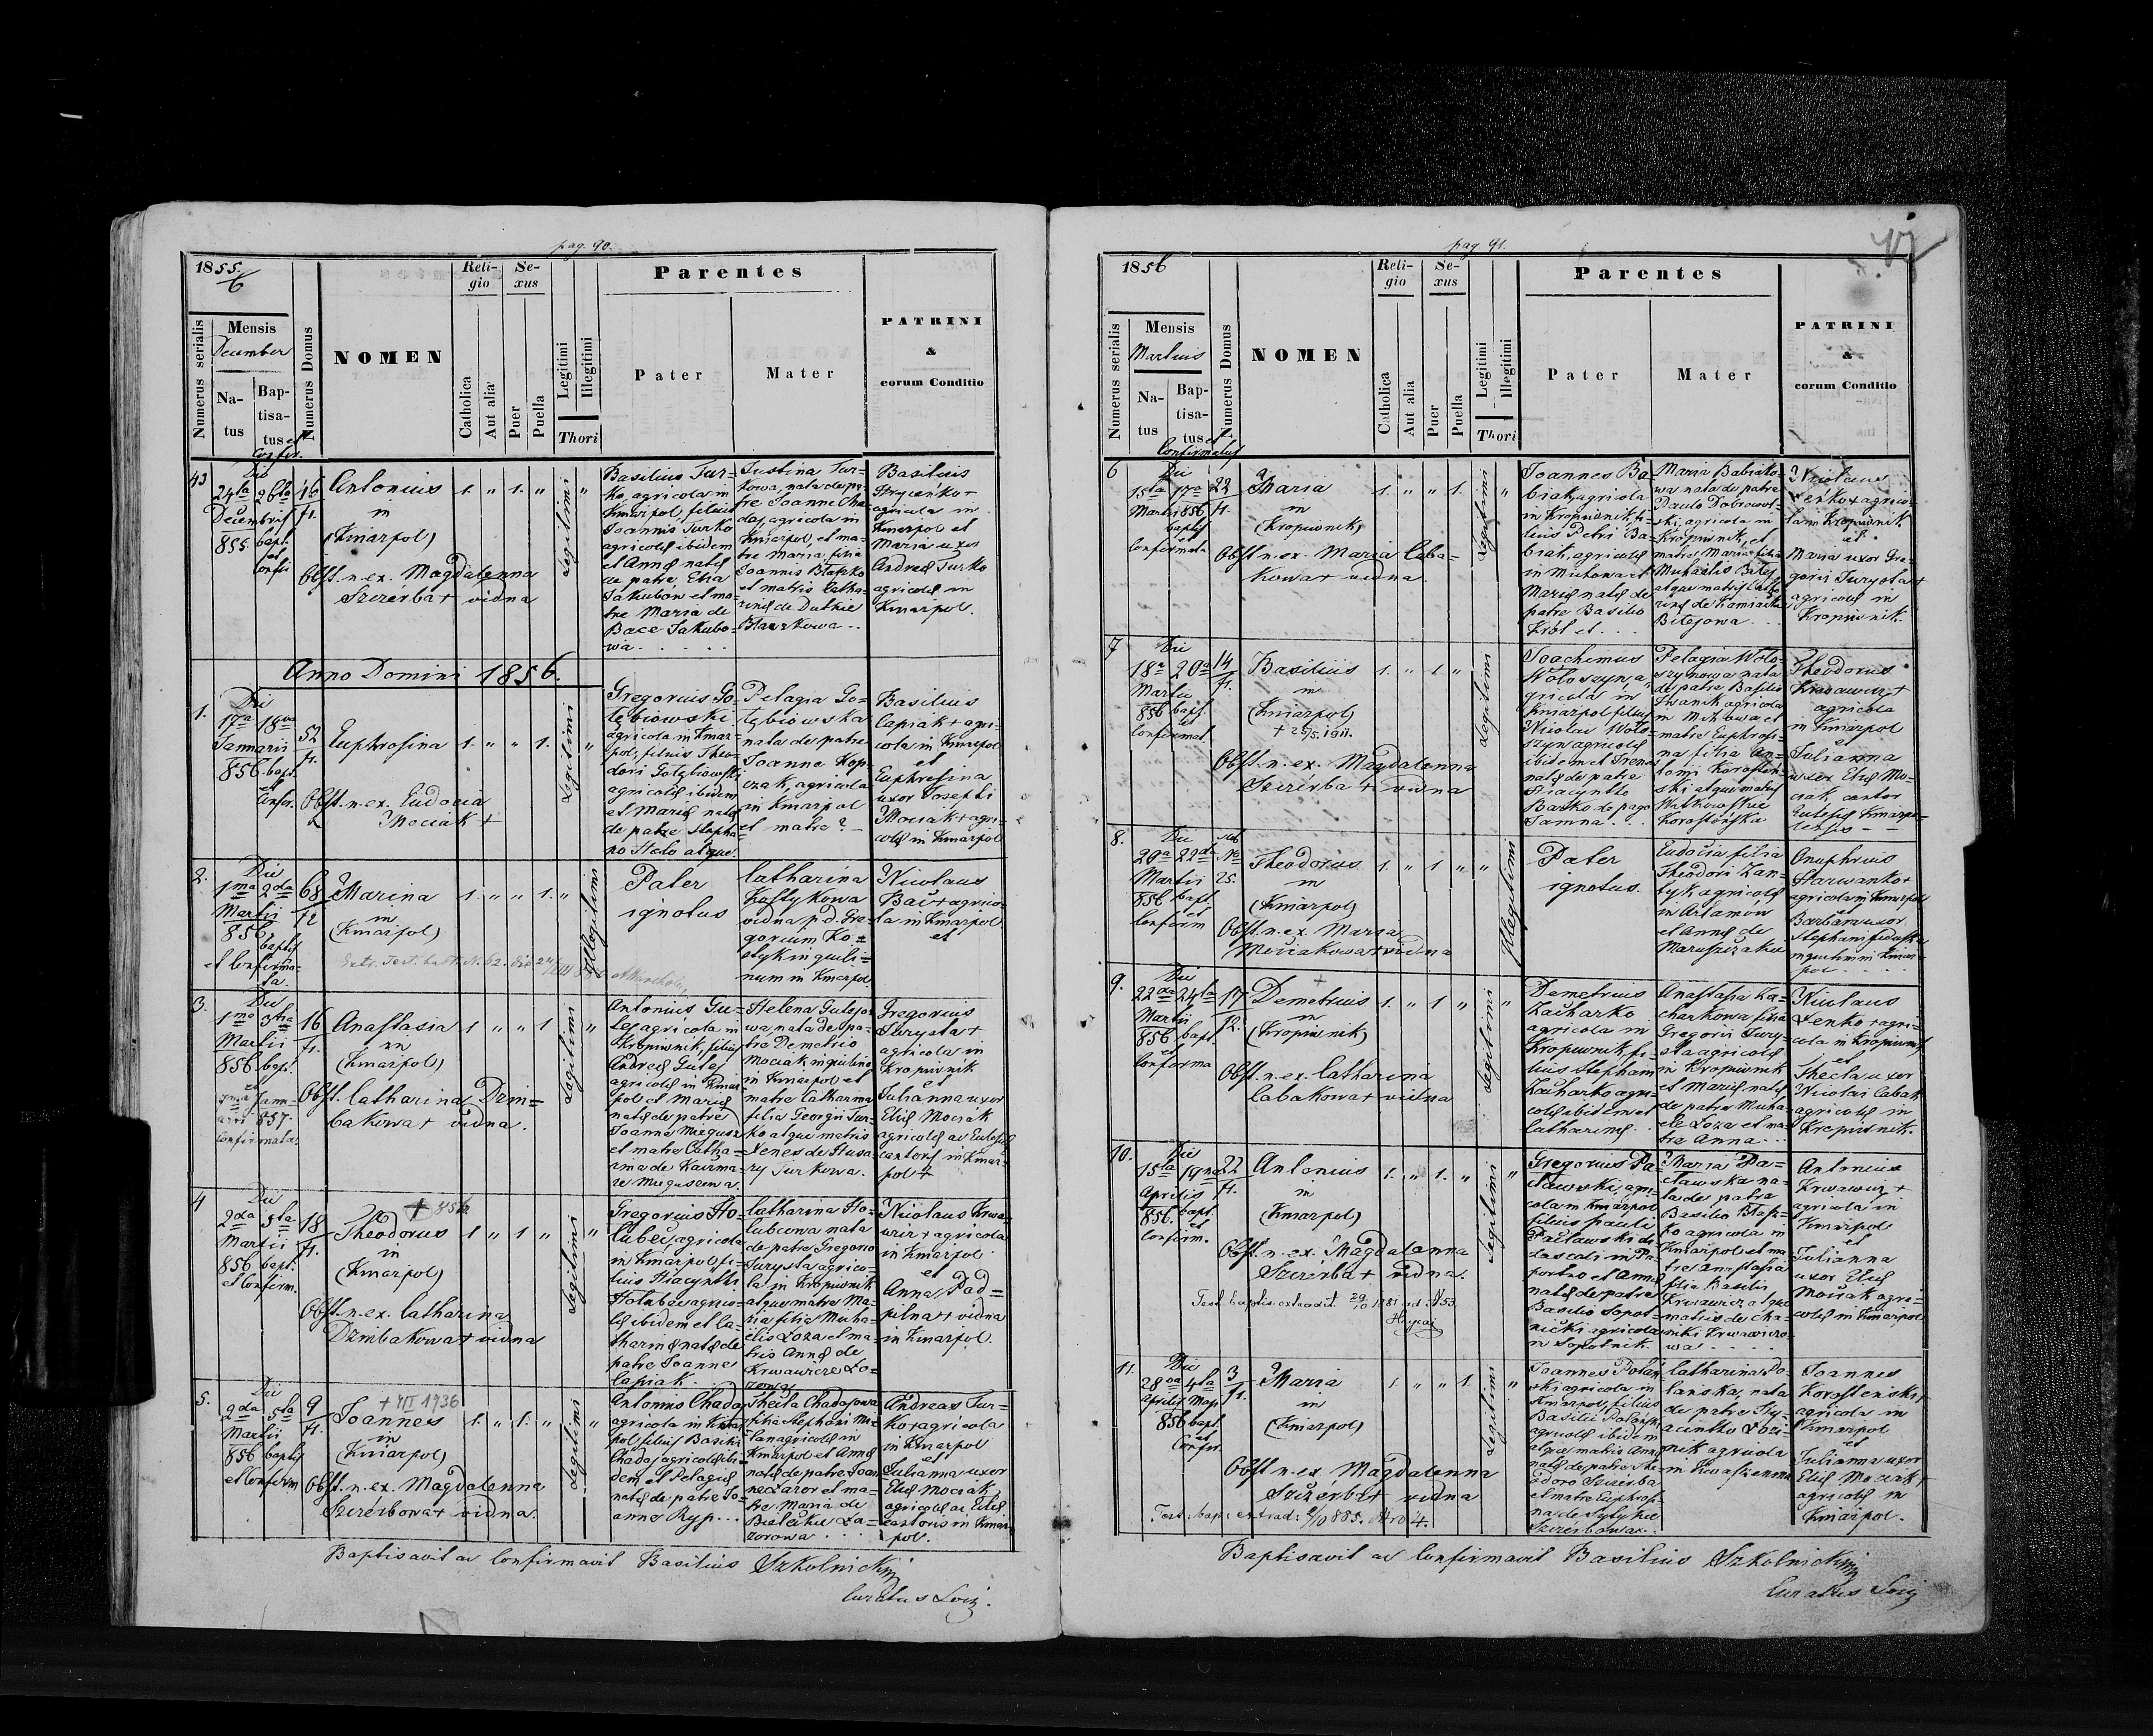 pag. 90.
1855.
6
Numerus serialis
Mensis
December
Na-
tus
Bap-
tisa-
tus et
Confir.
Numerus Domus
NOMEN
Reli-
gio
Catholica
Aut alia
Se-
xus
Puer
Puella
Legitimi
Illegitimi
Thori
Parentes
Pater
Mater
PATRINI
&
eorum Conditio
43
Die
24ta 26ta
Decembris
855. bapt.
et
Confir
46
fr.
Antonius
in
(Kniazpol)
Obst. n. ex. Magdalenna
Szczerba + vidna
1. " 1. "
Legitimi
"
Basilius Tur=
ko, agricola in
Kniazpol, filius
Joannis Turko
agricolæ ibidem
et Annæ natæ
de patre Elia
Jakubow et ma=
tre Maria de
Bace Jakubo=
wa
Justina Tur=
kowa, nata de pa=
tre Joanne Cha
daj, agricola in
Kniazpol, et ma=
tre Maria filia
Joannis Błażko
et matris Catha=
rinæ de Dutkie
Błażkowa
Basilius
agricola in
Kniazpol et
Maria uxor
Andreæ Turko
agricolæ in
Kniazpol.
Anno Domini 1856.
1.
Die
17ma 18va
Januarii
856. bapt.
et
Confir.
52
fr.
Euphrosina
Obst. n. ex. Eudocia
Mociak +
1. " " 1.
Legitimi
"
Gregorius Go=
łębiowski
agricola in Kniaz=
pol, filius Theo=
dori Gołębiowski
agricolæ ibidem
et Mariæ natæ
de patre Stepha
no Stelo atque
Pelagia Go=
łębiowska
nata de patre
Joanne Kop
czak, agricola
in Kniazpol
et matre ? —
Basilius
Capiak + agri=
cola in Kniazpol
et
Euphrosina
uxor Josephi
Mociak + agri=
colæ in Kniazpol
2.
Die
1ma 2da
Martii
856.
baptis
et Confirma=
ta.
68
fr
Marina
in
(Kniazpol)
1. " " 1. "
Illegitimi
Pater
ignotus
Catharina
Kostykowa
vidna p. d. Gre=
gorium Ko=
styk inquili=
num in Kniazpol
Nicolaus
Bać + agrico=
la in Kniazpol
et
3.
Die
1ma 3tia
Martii
856 bapt.
et
Janu=
arii 857.
Confirmata.
16
fr.
Anastasia
in
(Kniazpol)
Obst. Catharina Dzim=
bakowa + vidna.
1 " " 1
Legitimi
"
Antonius Gu=
lej agricola in
Kropiwnik, filius
Andreæ Gulej
agricolæ in Kniaz=
pol et Mariæ
natæ de patre
Joanne Miegusz
et matre Catha=
rina de Kaczma=
re Mieguszewa.
Helena Gulejo=
wa, nata de pa=
tre Demetrio
Mociak, inquilino
in Kniazpol et
matre Catharina
filia Georgii Tur=
ko atque matris
Xenes de Husa=
ry Turkowa.
Gregorius
Turysta +
agricola in
Kropiwnik
et
Julianna uxor
Eliæ Mociak
agricolæ ac Eulesiæ
cantoris in Kniaz=
pol +
4
Die
2da 5ta
Martii
856 bapt.
et Confirm.
18
fr.
+ 856
Theodorus
in
(Kniazpol)
Obst. n. ex. Catharina
Dzimbakowa + vidna
1 " 1 "
Legitimi
"
Gregorius Ho=
lubec agricola
in Kniazpol fi=
lius Hiacynthi
Holubec agrico=
læ ibidem et Ca=
tharinæ natæ de
patre Joanne
Capiak
Catharina Ho=
lubcowa nata
de patre Gregorio
Turysta agrico=
la in Kropiwnik
atque matre Ma=
ria filia Micha=
ëlis Łoza et ma=
tris Annæ de
Krwawicze Ło=
zowa
Nicolaus Krwa=
wicz + agricola
in Kniazpol
et
Anna Pod=
pilna + vidna
in Kniazpol.
5.
Die
2da 5ta
Martii
856 baptis
et Confirm
9
fr.
+ VII 1936
Joannes
in
(Kniazpol)
Obst. n. ex. Magdalenna
Szczerbowa + vidna.
1. " 1. "
Legitimi
"
Antonius Chadaj
agricola in Kniaz
pol filius Basilii
Chadaj agricolæ ibi=
dem et Pelagiæ
natæ de patre Jo=
anne Hyp...
Thecla Chadajowa
filia Stephani Mi=
lan agricolæ in
Kniazpol et Annæ
natæ de patre Joan
ne Łazor et ma=
tre Maria de
Bieleckie Ła=
zorowa
Andreas Tur=
ko + agricola
in Kniazpol
et
Julianna uxor
Eliæ Mociak
agricolæ ac Eccles
cantoris in Kniaz
pol.
Baptisavit ac Confirmavit Basilius Szkolnicki
Curatus Loci.
pag 91.
1856
Numerus serialis
Mensis
Martius
Na-
tus
Bap-
tisa-
tus et
Confirmatus
Numerus Domus
NOMEN
Reli-
gio
Catholica
Aut alia
Se-
xus
Puer
Puella
Legitimi
Illegitimi
Thori
Parentes
Pater
Mater
PATRINI
&
eorum Conditio
6
Die
15ta 17a
Martii 856
baptis
et
Confirmata
22
fr.
Maria
in
(Kropiwnik)
Obst. n. ex. Maria Caba=
kowa + vidna
1. " " 1.
Legitimi
"
Joannes Ba=
biak, agricola
in Kropiwnik, fi=
lius Petri Ba=
biak, agricolæ
in Michowa et
Mariæ natæ de
patre Basilio
Król et
Maria Babiako=
wa nata de patre
Paulo Dobrowol=
ski, agricola in
Kropiwnik, et
matre Maria filia
Michaëlis Bitej
atque matris Catha
rinæ de Komanska
Bitejowa
Nicolaus
Łeńko + agrico=
la in Kropiwnik
et
Maria uxor Gre=
gorii Turysta +
agricolæ in
Kropiwnik.
7
Die
18a 20a
Martii
856 bapt
et
Confirmat.
14
fr.
Basilius
in
(Kniazpol)
+ 25/5. 1911.
Obst. n. ex. Magdalenna
Szczerba + vidna
1. " 1 "
Legitimi
Joachimus
Wołoszyn a=
gricola in
Kniazpol filius
Nicolai Woło=
szyn agricolæ
ibidem et Irenæ
natæ de patre
Hiacyntho
Basko de pago
Jamna
Pelagia Woło=
szynowa nata
de patre Basilio
Iwanik agricola
in Michowa et
matre Euphrosi=
na filia An=
tonii Korosteń=
ski atque matris
Witkowskie
Korosteńska
Theodorus
Krwawicz +
agricola
in Kniazpol
et
Julianna
uxor Eliæ Mo=
ciak, cantor
Eulesiæ Kniazpo=
lensis
8.
Die
20a 22da
Martii
856 bapt.
et
Confirm
sub
No
25.
Theodorus
in
(Kniazpol)
Obst. n. ex. Maria
Mociakowa + vidna
1. " 1 " "
Illegitimi
Pater
ignotus.
Eudocia filia
Theodori Kan=
tyk agricolæ
in Arłamów
et Annæ de
Maruszczakie
Onuphrius
Starwanko +
agricola in Kniazpol
et
Barbara uxor
Stephani
inquilini in Kniaz=
pol
9.
Die
22da 24ta
Martii
856. bapt.
et
Confirma
17
fr.
+
Demetrius
in
(Kropiwnik)
Obst. n. ex. Catharina
Cabakowa + vidna
1. " 1 "
Legitimi
"
Demetrius
Zacharko
agricola in
Kropiwnik, fi=
lius Stephani
Zacharko agri=
colæ ibidem et
Catharinæ
Anastasia Za=
charkowa filia
Gregorii Tury=
sta agricolæ
in Kropiwnik
et Mariæ natæ
de patre Micha=
ele Łoza et ma=
tre Anna
Nicolaus
Łenko + agri=
cola in Kropiwnik
et
Thecla uxor
Nicolai Cabak
agricolæ in
Kropiwnik.
10.
Die
15ta 19na
Aprilis
856. bapt.
et
Confirm.
22
fr.
Antonius
in
(Kniazpol)
Obst. n. ex. Magdalenna
Szczerba + vidna.
Test. Baptis. extradit. 29/10 1881 ad N 53.
1. " 1. "
Legitimi
"
Gregorius Pa=
cławski, agri=
cola in Kniazpol
filius Pauli
Pacławski di=
dascali in Pa=
portno et Annæ
natæ de patre
Basilio Sopot=
nicki agricola
in Sopotnik.
Maria Pa=
cławska na=
ta de patre
Basilio Błaż=
ko agricola in
Kniazpol et ma
tre Anastasia
filia Basilii
Krwawicz atque
matris de Cha=
niki Krwawiczo=
wa
Antonius
Krwawicz +
agricola in
Kniazpol
et
Julianna
uxor Eliæ
Mociak agri=
colæ in Kniazpol
11.
Die
28va 4ta
Aprilis Maji
856 bapt
et
Confir.
3
fr.
Maria
in
(Kniazpol)
Obst n. ex. Magdalenna
Szczerba + vidna
Test: bapt: extrad: 2/10 885. Nro 4.
1 " " 1.
Legitimi
"
Joannes Polań
ski agricola in
Kniazpol, filius
Basilii Polański
agricolæ ibidem
atque matris Annæ
natæ de patre The=
odoro Szczerba
et matre Euphrosi=
na de
Szczerbowa
Catharina Po=
lańska, nata
de patre Hy=
acintho Łozi=
nik agricola
in Kwaszenina
Joannes
Korostenski +
agricola in
Kniazpol
et
Julianna uxor
Eliæ Mociak +
agricolæ in
Kniazpol.
Baptisavit ac Confirmavit Basilius Szkolnicki
Curatus Loci